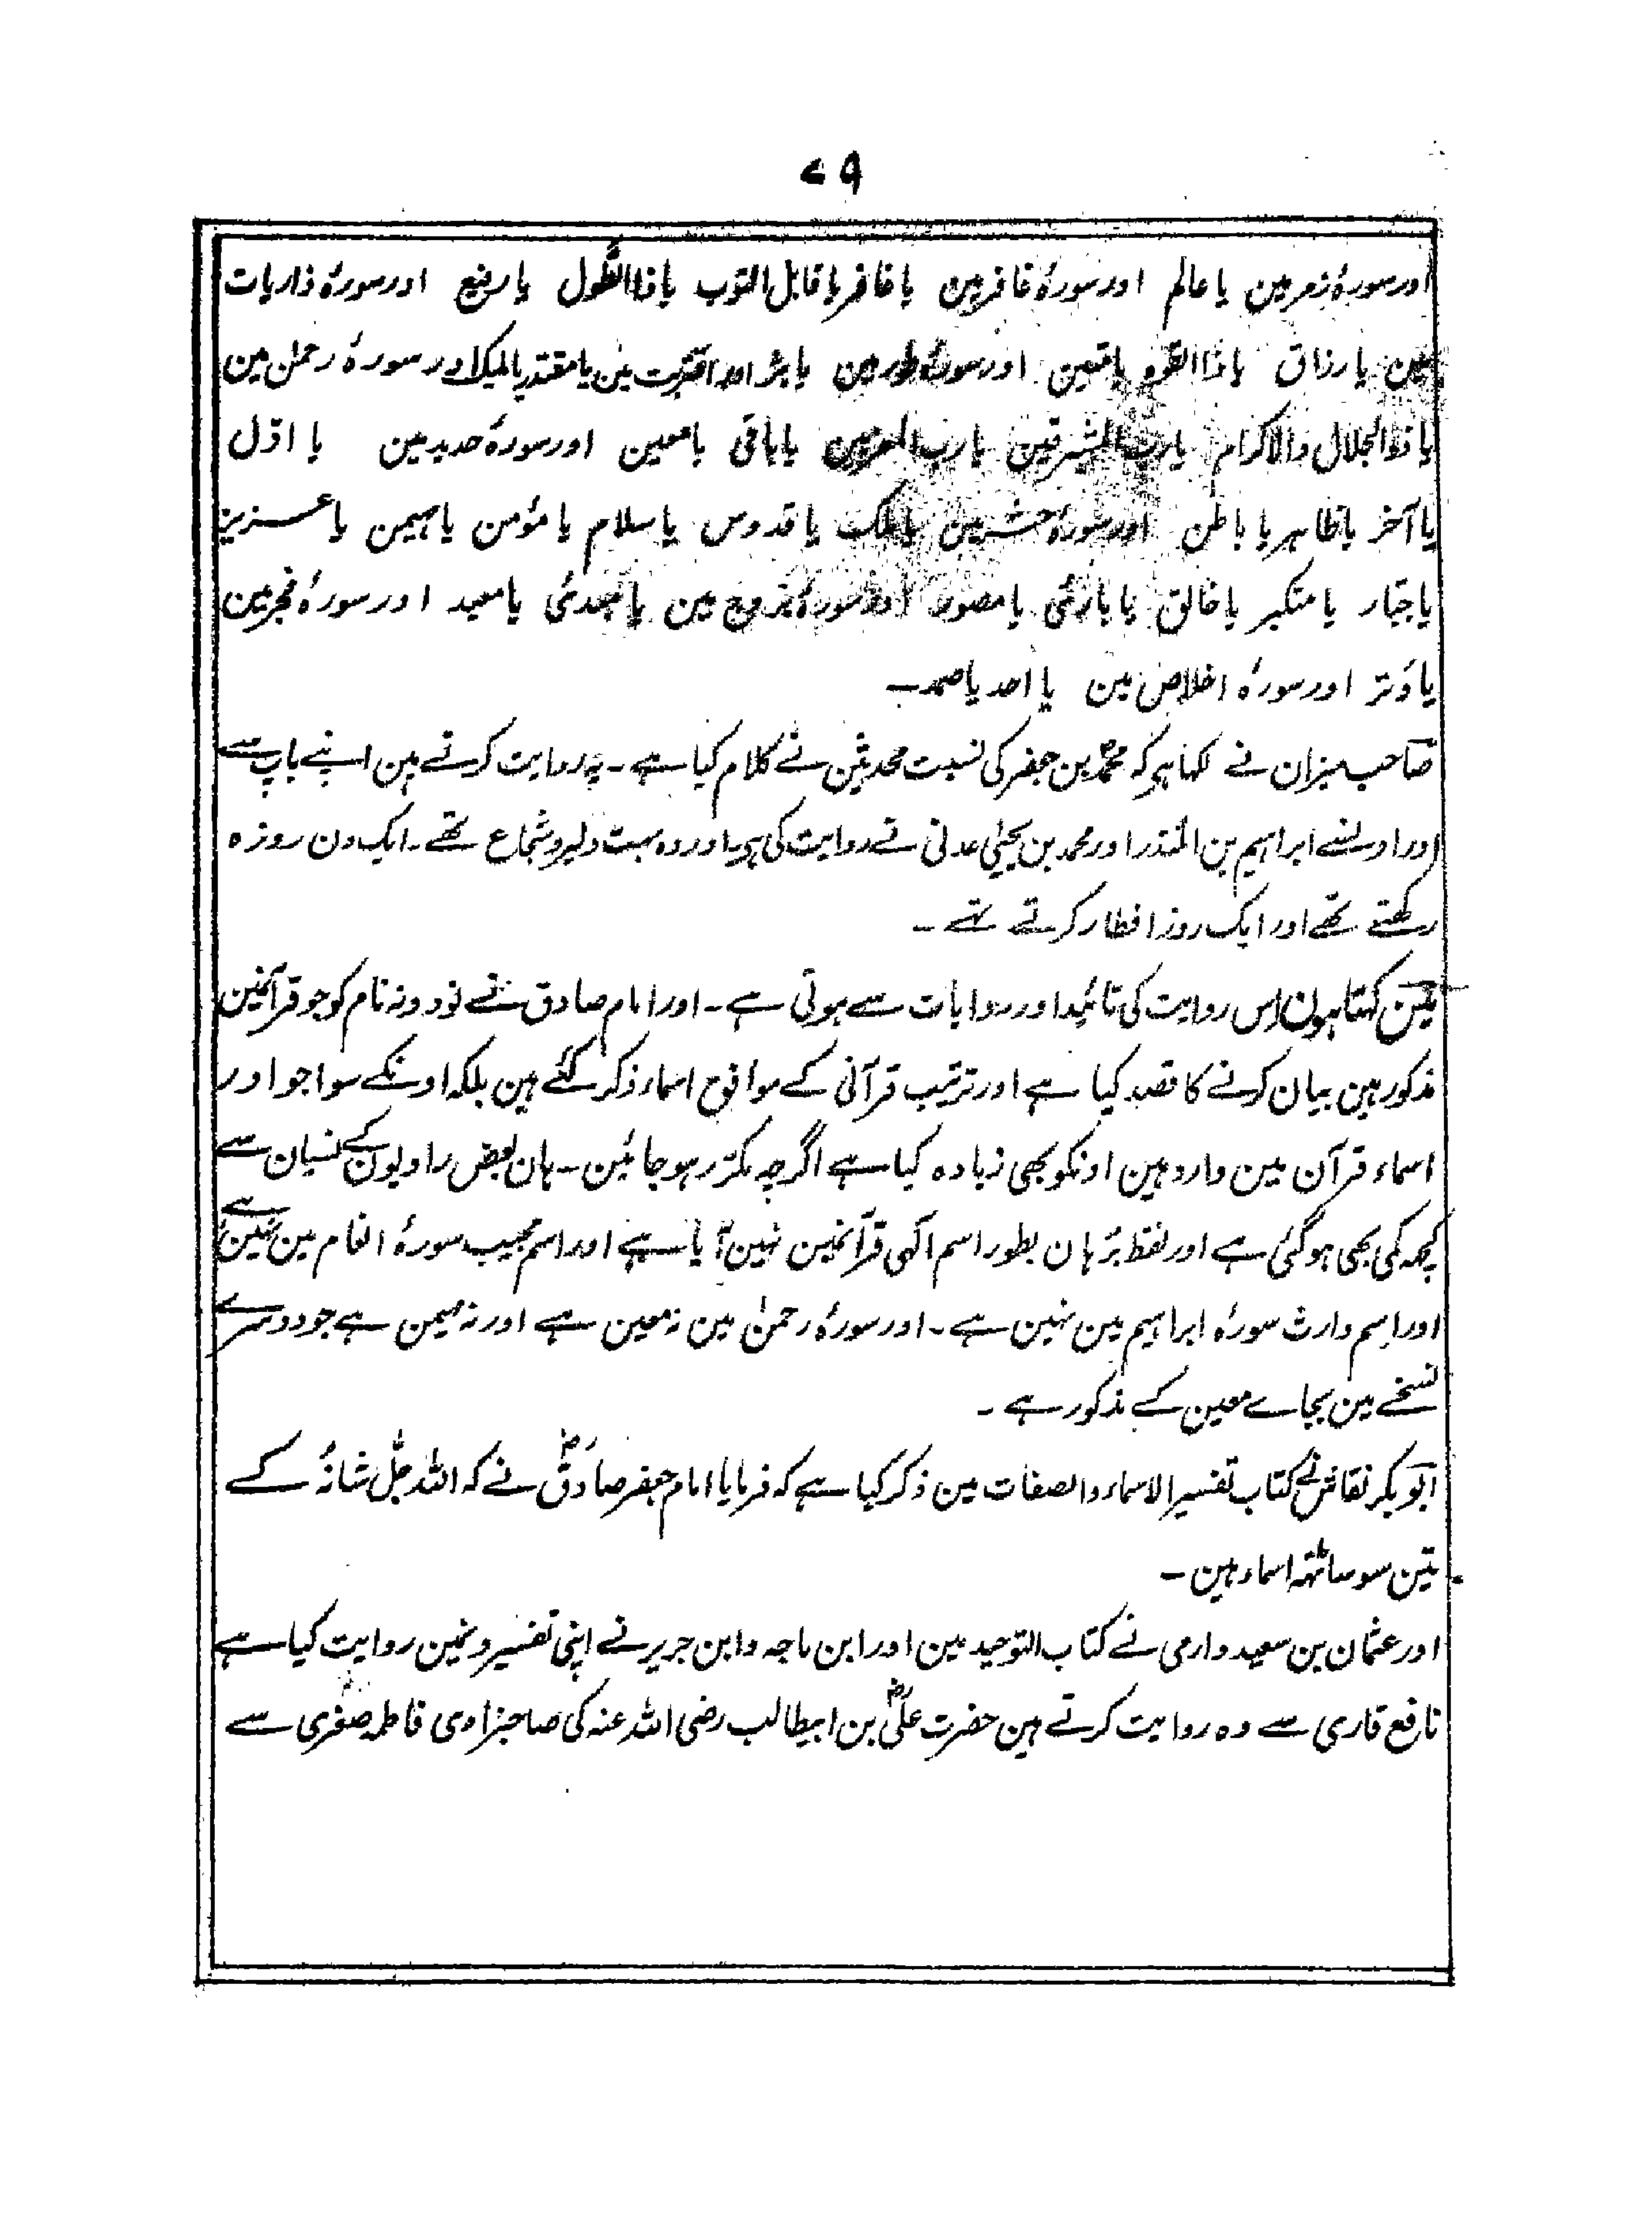 ۷۹
اور سورۂ زمر مین یا عالم اور سورۂ غافر مین یا غافر یا قابل التوب یا ذا الطَّول یا رفیع اور سورۂ ذاریات
مین یا رزاق یا ذا القوۃ یا متین اور سورۂ طور مین یا بَرّ اور اقتربت مین یا مقتدر یا ملیک اور سورۂ رحمٰن مین
یا ذا الجلال والاکرام یا رب المشرقین یا رب المغربین یا باقی یا معین اور سورۂ حدید مین یا اوّل
یا آخر یا ظاہر یا باطن اور سورۂ حشر مین یا ملک یا قدوس یا سلام یا مؤمن یا مہیمن یا عزیز
یا جبّار یا متکبر یا خالق یا بارئ یا مصور اور سورۂ بروج مین یا مبدئ یا معید اور سورۂ فجر مین
یا وَتر اور سورۂ اخلاص مین یا احد یا صمد۔
صاحب میزان نے لکہا ہر کہ محمدؐ بن جعفر کی نسبت محدثین نے کلام کیا ہے۔ یہ روایت کرتے ہین اپنے باپ سے
اور اونسے ابراہیم بن المنذر اور محمد بن یحییٰ عدنی نے روایت کی ہر اور وہ بہت دلیر و شجاع تھے۔ ایک دن روزہ
رکھتے تھے اور ایک روز افطار کرتے تہے۔
مین کہتا ہون اِس روایت کی تائید اور روایات سے ہوتی ہے۔ اور امام صادق نے نود و نہ نام کو جو قرآنمین
مذکور ہین بیان کرنے کا قصد کیا ہے اور ترتیب قرآنی کے موافق اسماء ذکر کئے ہین بلکہ اونکے سوا جو اور
اسماء قرآن مین وارد ہین اونکو بھی زیادہ کیا ہے اگرچہ مکرّر ہو جائین۔ ہان بعض راویون کے نسیان سے
کچہ کمی بھی ہو گئی ہے اور لفظ بُرہان بطور اسم الٰہی قرآنمین نہین آیا ہے اور اسم مجیب سورۂ انعام مین نہین ہے
اور اِسم وارث سورۂ ابراہیم مین نہین ہے۔ اور سورۂ رحمٰن مین نہ معین ہے اور نہ مہیمن ہے جو دوسرے
نسخے مین بجاے معین کے مذکور ہے۔
ابو بکر نقاش نے کتاب تفسیر الاسماء والصفات مین ذکر کیا ہے کہ فرمایا امام جعفر صادقؓ نے کہ اللہ جلّ شانہٗ کے
تین سو ساٹہہ اسماء ہین۔
اور عثمان بن سعید دارمی نے کتاب التوحید مین اور ابن ماجہ و ابن جریر نے اپنی تفسیرونمین روایت کیا ہے
نافع قاری سے وہ روایت کرتے ہین حضرت علیؓ بن ابیطالب رضی اللہ عنہ کی صاحبزادی فاطمہ صغریٰ سے